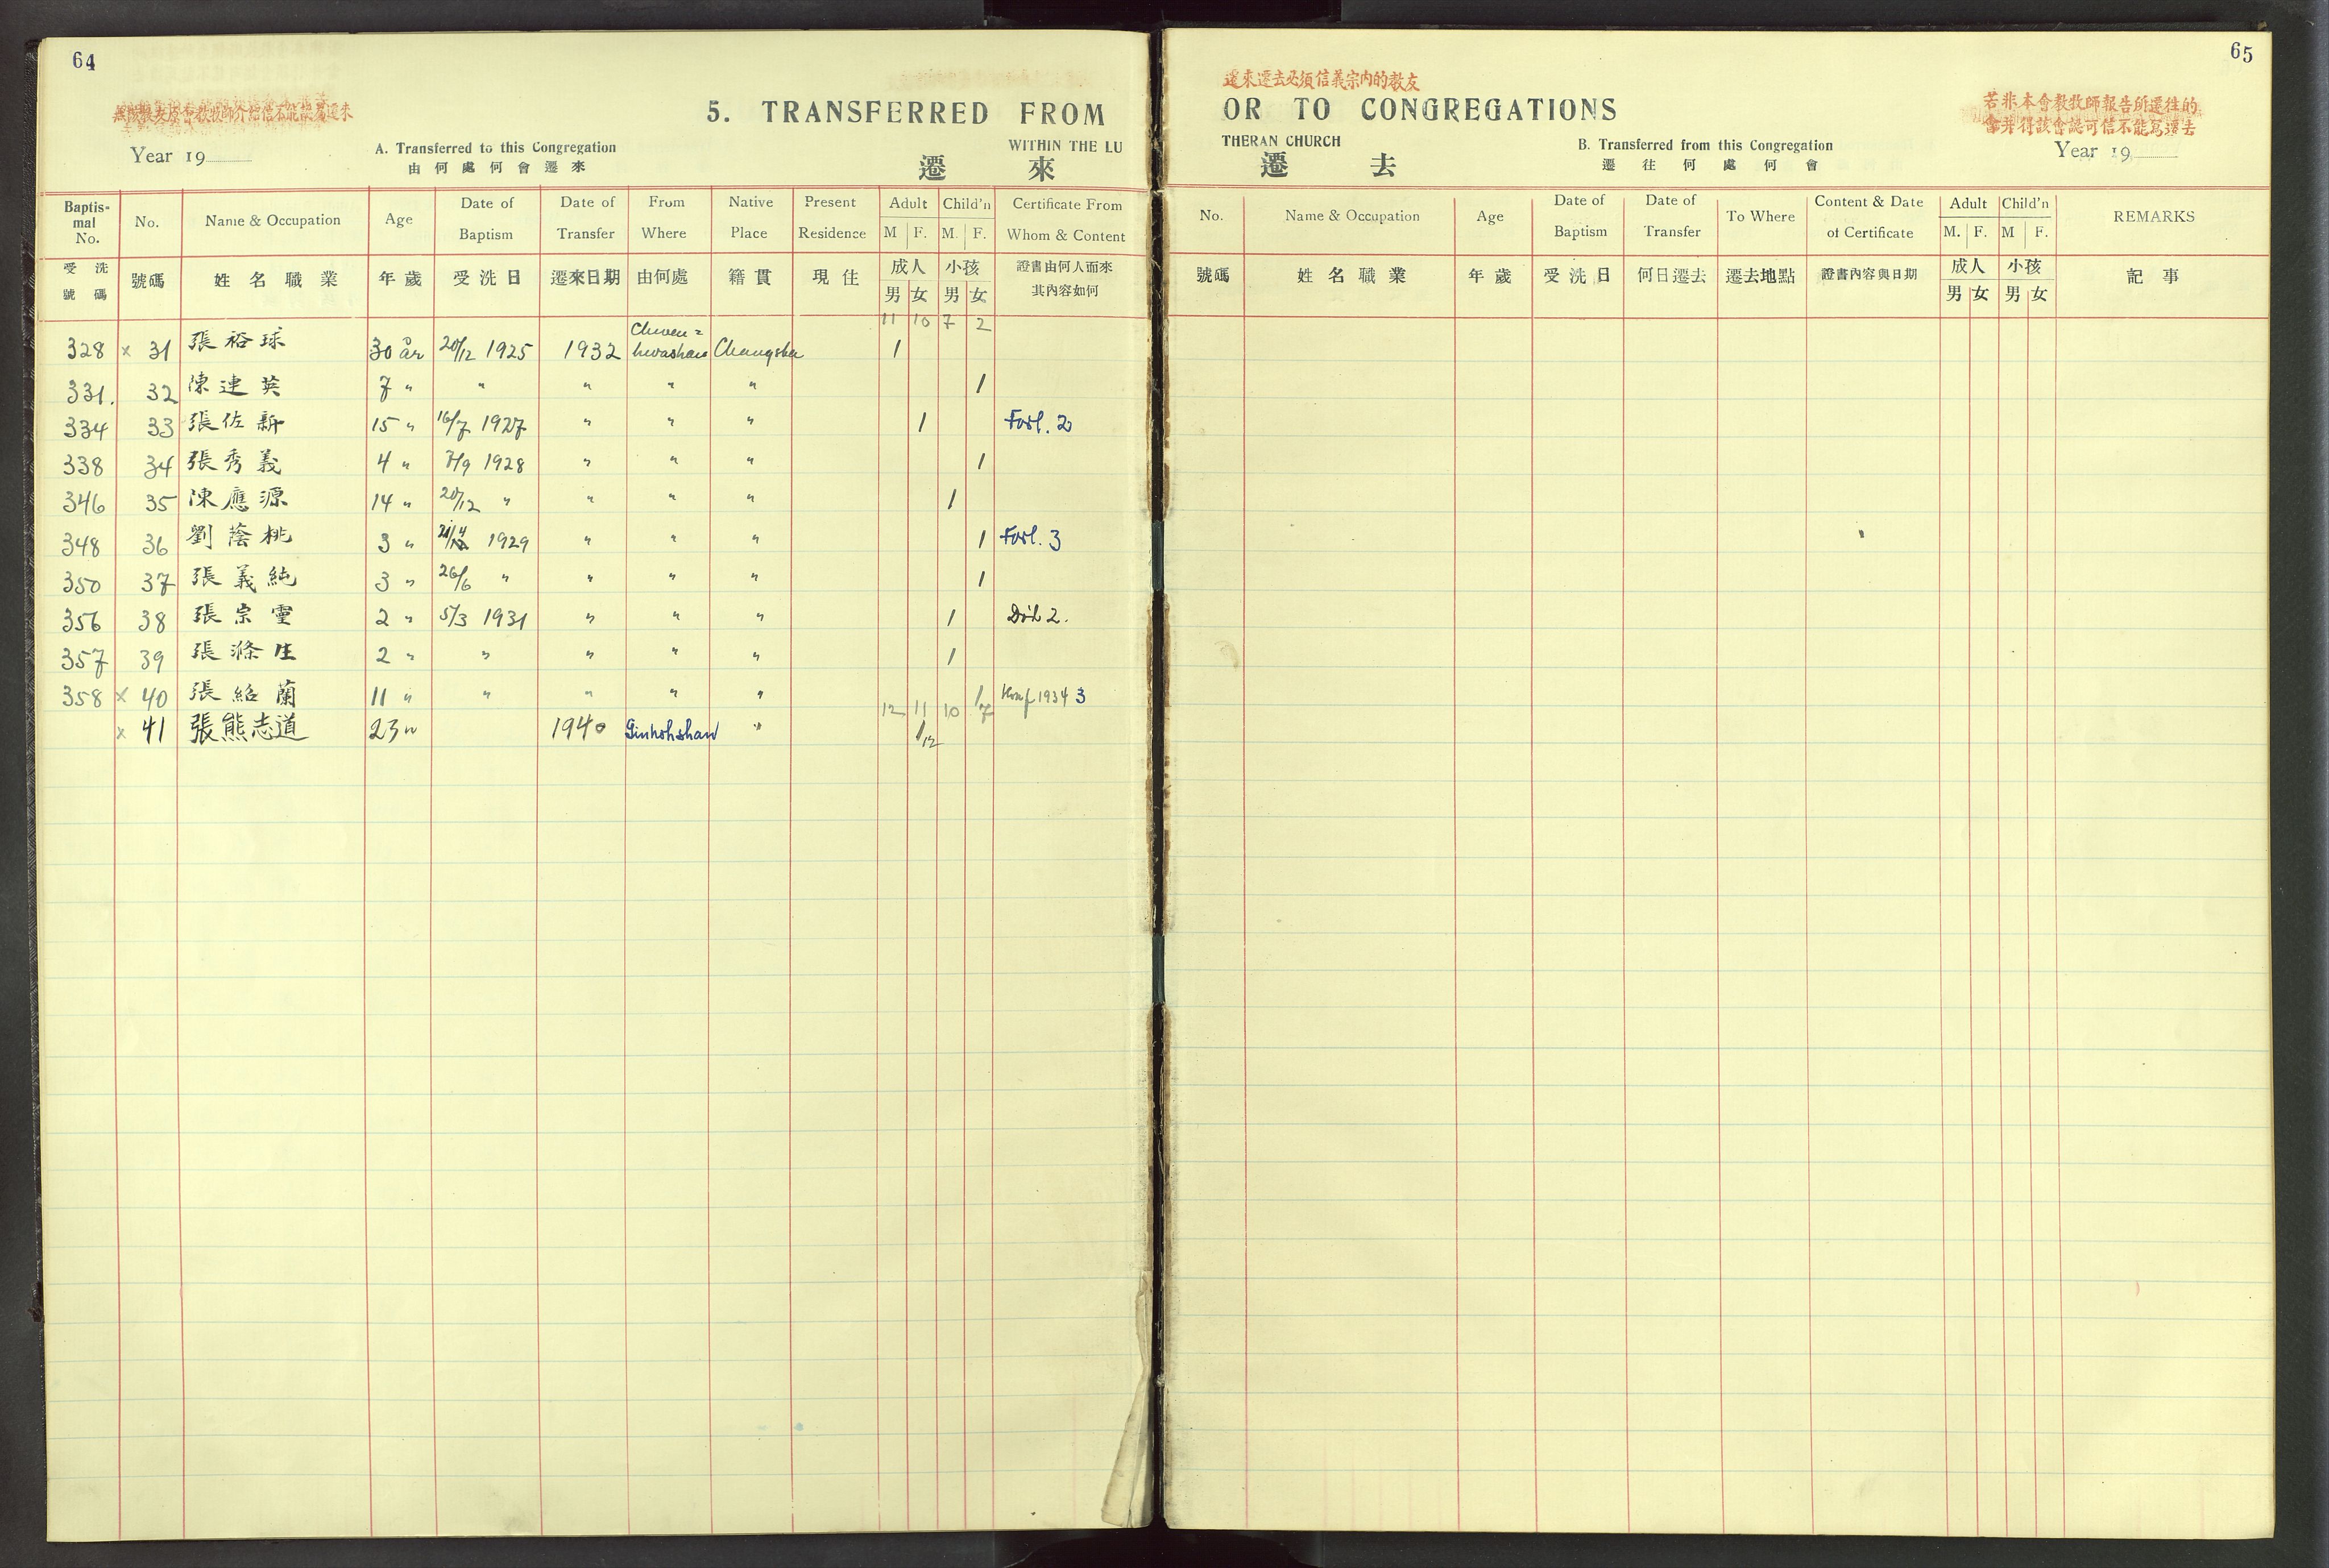 64
5. TRANSFERRED FROM
Year 19
A. Transferred to this Congregation
WITHIN THE LU
由何處何會遷來
遷 來
Baptismal No. No. Name & Occupation Age Date of Baptism Date of Transfer From Where Native Place Present Residence Adult M F. Child'n M. F. Certificate From Whom & Content
受洗號碼 號碼 姓名職業 年歲 受洗日 遷來日期 由何處 籍貫 現住 成人 男 女 小孩 男 女 證書由何人而來其內容如何
11 10 7 2
328 × 31 張裕球 30 år 20/12 1925 1932 Chwen= hwashan Changsha 1
331. 32 陳連英 7 " " " " " 1
334 33 張佐新 15 " 16/7 1927 " " " 1 Forl. 2
338 34 張秀義 4 " 7/9 1928 " " " 1
346 35 陳應源 14 " 20/12 " " " " 1
348 36 劉蔭桃 3 " 1929 " " " 1 Forl. 3
350 37 張義純 3 " 26/6 " " " " 1
356 38 張宗靈 2 " 5/3 1931 " " " 1 Död 2.
357 39 張滌生 2 " " " " " 1
358 × 40 張紹蘭 11 " " " " " 1 Konf 1934 3
12 11 10 7
× 41 張熊志道 23 " 1940 Ginhohshan " 1
12
65
遷來遷去必須信義宗內的教友
OR TO CONGREGATIONS
若非本會教牧師報告所遷往的
THERAN CHURCH
B. Transferred from this Congregation
Year 19
遷 去
遷往何處何會
No. Name & Occupation Age Date of Baptism Date of Transfer To Where Content & Date of Certificate Adult M. F. Child'n M F. REMARKS
號碼 姓名職業 年歲 受洗日 何日遷去 遷去地點 證書內容與日期 成人 男 女 小孩 男 女 記事